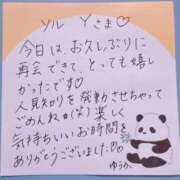 ソル Yさま♡
今日は、お久しぶりに
再会できて、とっても嬉し
かったです♡
人見知りを発動させちゃって
ごめんね💦(笑) 楽しく
気持ちいいお時間を
ありがとうございました♡
ゆうか